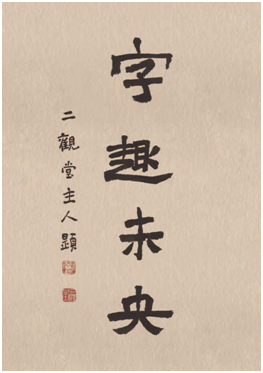 字趣未央
二觀堂主人顯